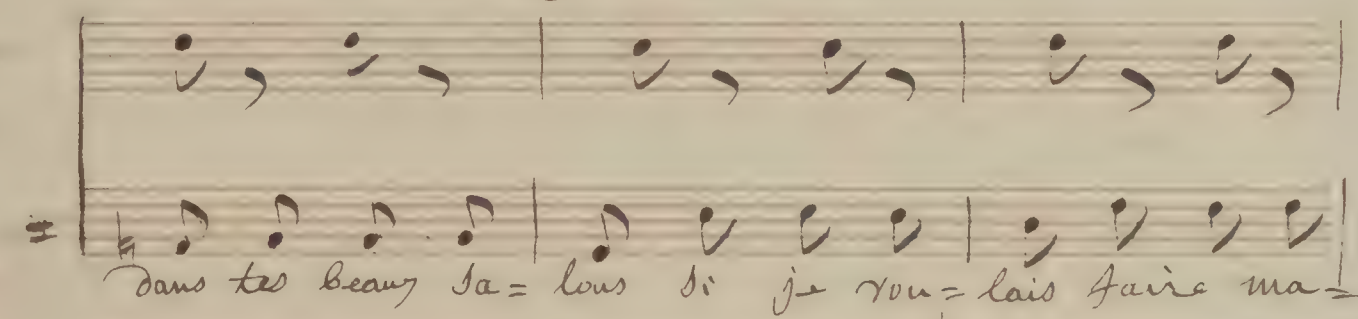 dans tes beaux sa= lons si je vou= lais faire ma=